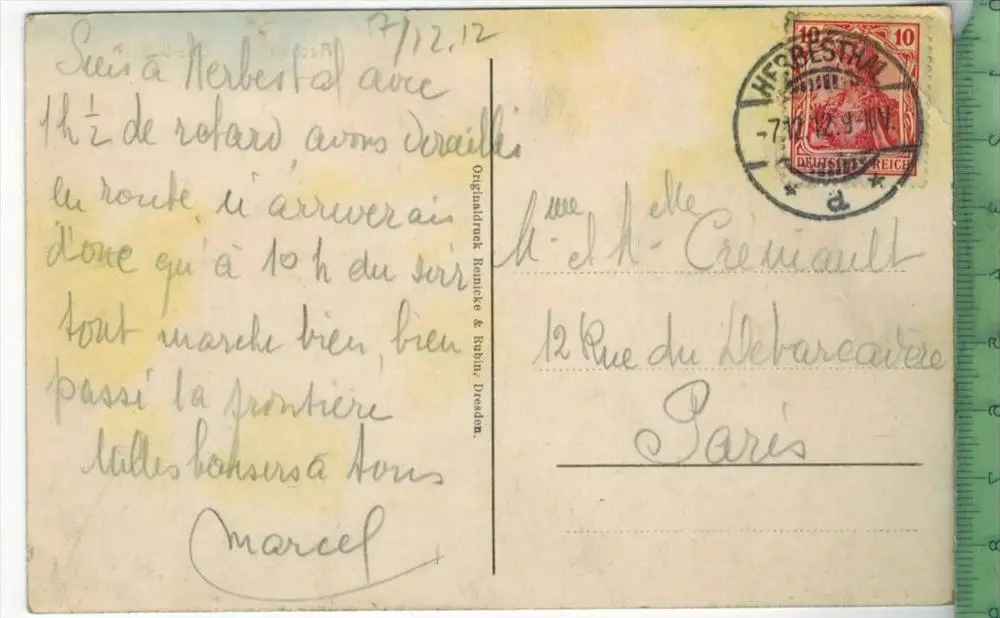 7/12.12
Suis à Herbestal avec
1h ½ de retard, avons déraillé
en route, n'arriverais
donc qu'à 10h du soir
tout marche bien, bien
passé la frontière
Milles baisers à tous
Marcel
Originaldruck Reinicke & Rubin, Dresden.
10 10
DEUTSCHES REICH
HERBESTHAL
-7.12.12.9-10V.
* a *
Mme et Mlle Crémault
12 Rue du Débarcadère
Paris